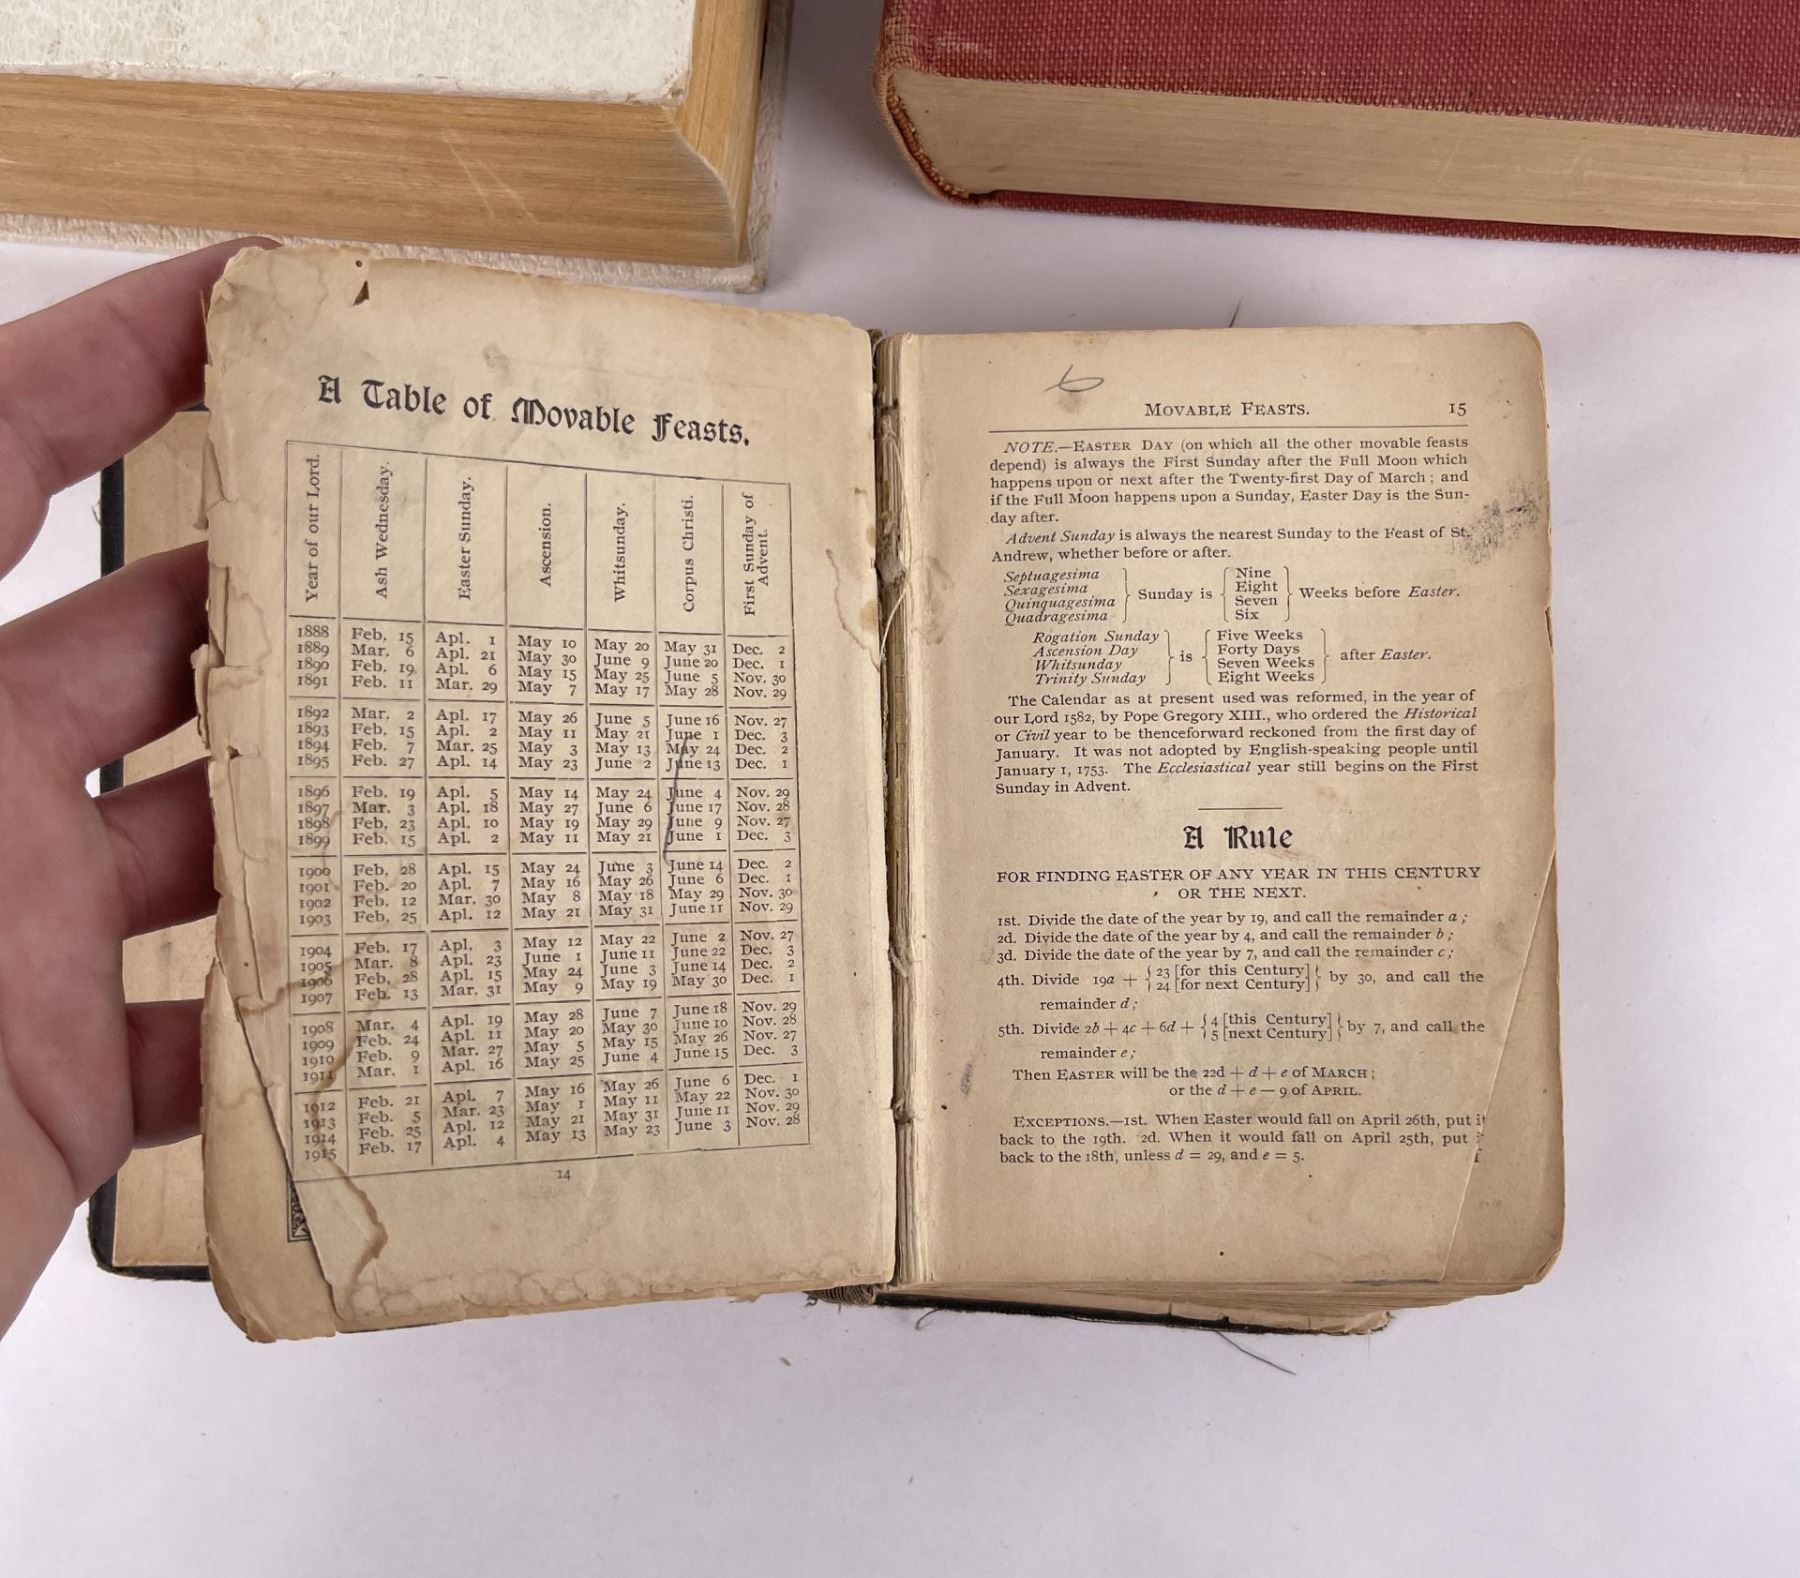 A Table of Movable Feasts.
Year of our Lord. Ash Wednesday. Easter Sunday. Ascension. Whitsunday. Corpus Christi. First Sunday of Advent.
1888 Feb. 15 Apl. 1 May 10 May 20 May 31 Dec. 2
1889 Mar. 6 Apl. 21 May 30 June 9 June 20 Dec. 1
1890 Feb. 19 Apl. 6 May 15 May 25 June 5 Nov. 30
1891 Feb. 11 Mar. 29 May 7 May 17 May 28 Nov. 29
1892 Mar. 2 Apl. 17 May 26 June 5 June 16 Nov. 27
1893 Feb. 15 Apl. 2 May 11 May 21 June 1 Dec. 3
1894 Feb. 7 Mar. 25 May 3 May 13 May 24 Dec. 2
1895 Feb. 27 Apl. 14 May 23 June 2 June 13 Dec. 1
1896 Feb. 19 Apl. 5 May 14 May 24 June 4 Nov. 29
1897 Mar. 3 Apl. 18 May 27 June 6 June 17 Nov. 28
1898 Feb. 23 Apl. 10 May 19 May 29 June 9 Nov. 27
1899 Feb. 15 Apl. 2 May 11 May 21 June 1 Dec. 3
1900 Feb. 28 Apl. 15 May 24 June 3 June 14 Dec. 2
1901 Feb. 20 Apl. 7 May 16 May 26 June 6 Dec. 1
1902 Feb. 12 Mar. 30 May 8 May 18 May 29 Nov. 30
1903 Feb. 25 Apl. 12 May 21 May 31 June 11 Nov. 29
1904 Feb. 17 Apl. 3 May 12 May 22 June 2 Nov. 27
1905 Mar. 8 Apl. 23 June 1 June 11 June 22 Dec. 3
1906 Feb. 28 Apl. 15 May 24 June 3 June 14 Dec. 2
1907 Feb. 13 Mar. 31 May 9 May 19 May 30 Dec. 1
1908 Mar. 4 Apl. 19 May 28 June 7 June 18 Nov. 29
1909 Feb. 24 Apl. 11 May 20 May 30 June 10 Nov. 28
1910 Feb. 9 Mar. 27 May 5 May 15 May 26 Nov. 27
1911 Mar. 1 Apl. 16 May 25 June 4 June 15 Dec. 3
1912 Feb. 21 Apl. 7 May 16 May 26 June 6 Dec. 1
1913 Feb. 5 Mar. 23 May 1 May 11 May 22 Nov. 30
1914 Feb. 25 Apl. 12 May 21 May 31 June 11 Nov. 29
1915 Feb. 17 Apl. 4 May 13 May 23 June 3 Nov. 28
14
6
MOVABLE FEASTS. 15
NOTE.—EASTER DAY (on which all the other movable feasts
depend) is always the First Sunday after the Full Moon which
happens upon or next after the Twenty-first Day of March; and
if the Full Moon happens upon a Sunday, Easter Day is the Sun-
day after.
Advent Sunday is always the nearest Sunday to the Feast of St.
Andrew, whether before or after.
Septuagesima
Sexagesima
Quinquagesima
Quadragesima
} Sunday is {
Nine
Eight
Seven
Six
} Weeks before Easter.
Rogation Sunday
Ascension Day
Whitsunday
Trinity Sunday
} is {
Five Weeks
Forty Days
Seven Weeks
Eight Weeks
} after Easter.
The Calendar as at present used was reformed, in the year of
our Lord 1582, by Pope Gregory XIII., who ordered the Historical
or Civil year to be thenceforward reckoned from the first day of
January. It was not adopted by English-speaking people until
January 1, 1753. The Ecclesiastical year still begins on the First
Sunday in Advent.
A Rule
FOR FINDING EASTER OF ANY YEAR IN THIS CENTURY
OR THE NEXT.
1st. Divide the date of the year by 19, and call the remainder a;
2d. Divide the date of the year by 4, and call the remainder b;
3d. Divide the date of the year by 7, and call the remainder c;
4th. Divide 19a + { 23 [for this Century] 24 [for next Century] } by 30, and call the
remainder d;
5th. Divide 2b + 4c + 6d + { 4 [this Century] 5 [next Century] } by 7, and call the
remainder e;
Then EASTER will be the 22d + d + e of MARCH;
or the d + e — 9 of APRIL.
EXCEPTIONS.—1st. When Easter would fall on April 26th, put it
back to the 19th. 2d. When it would fall on April 25th, put
back to the 18th, unless d = 29, and e = 5.